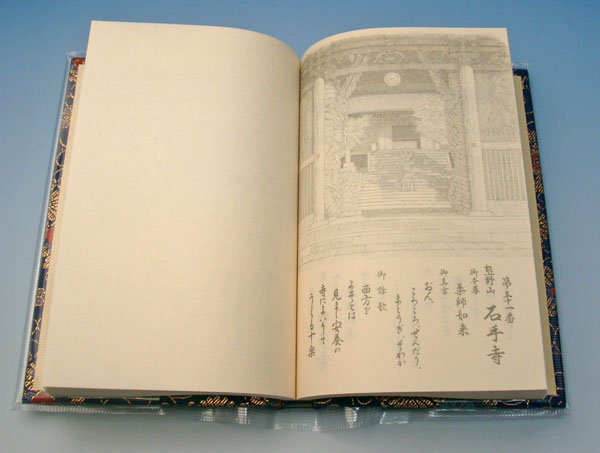 第五十一番
熊野山 石手寺
御本尊
薬師如来
御真言
おん、
ころころ、せんだり、
まとうぎ、そわか
御詠歌
西方を
よそとは
見まじ安養の
寺にまいりて
うくる十楽